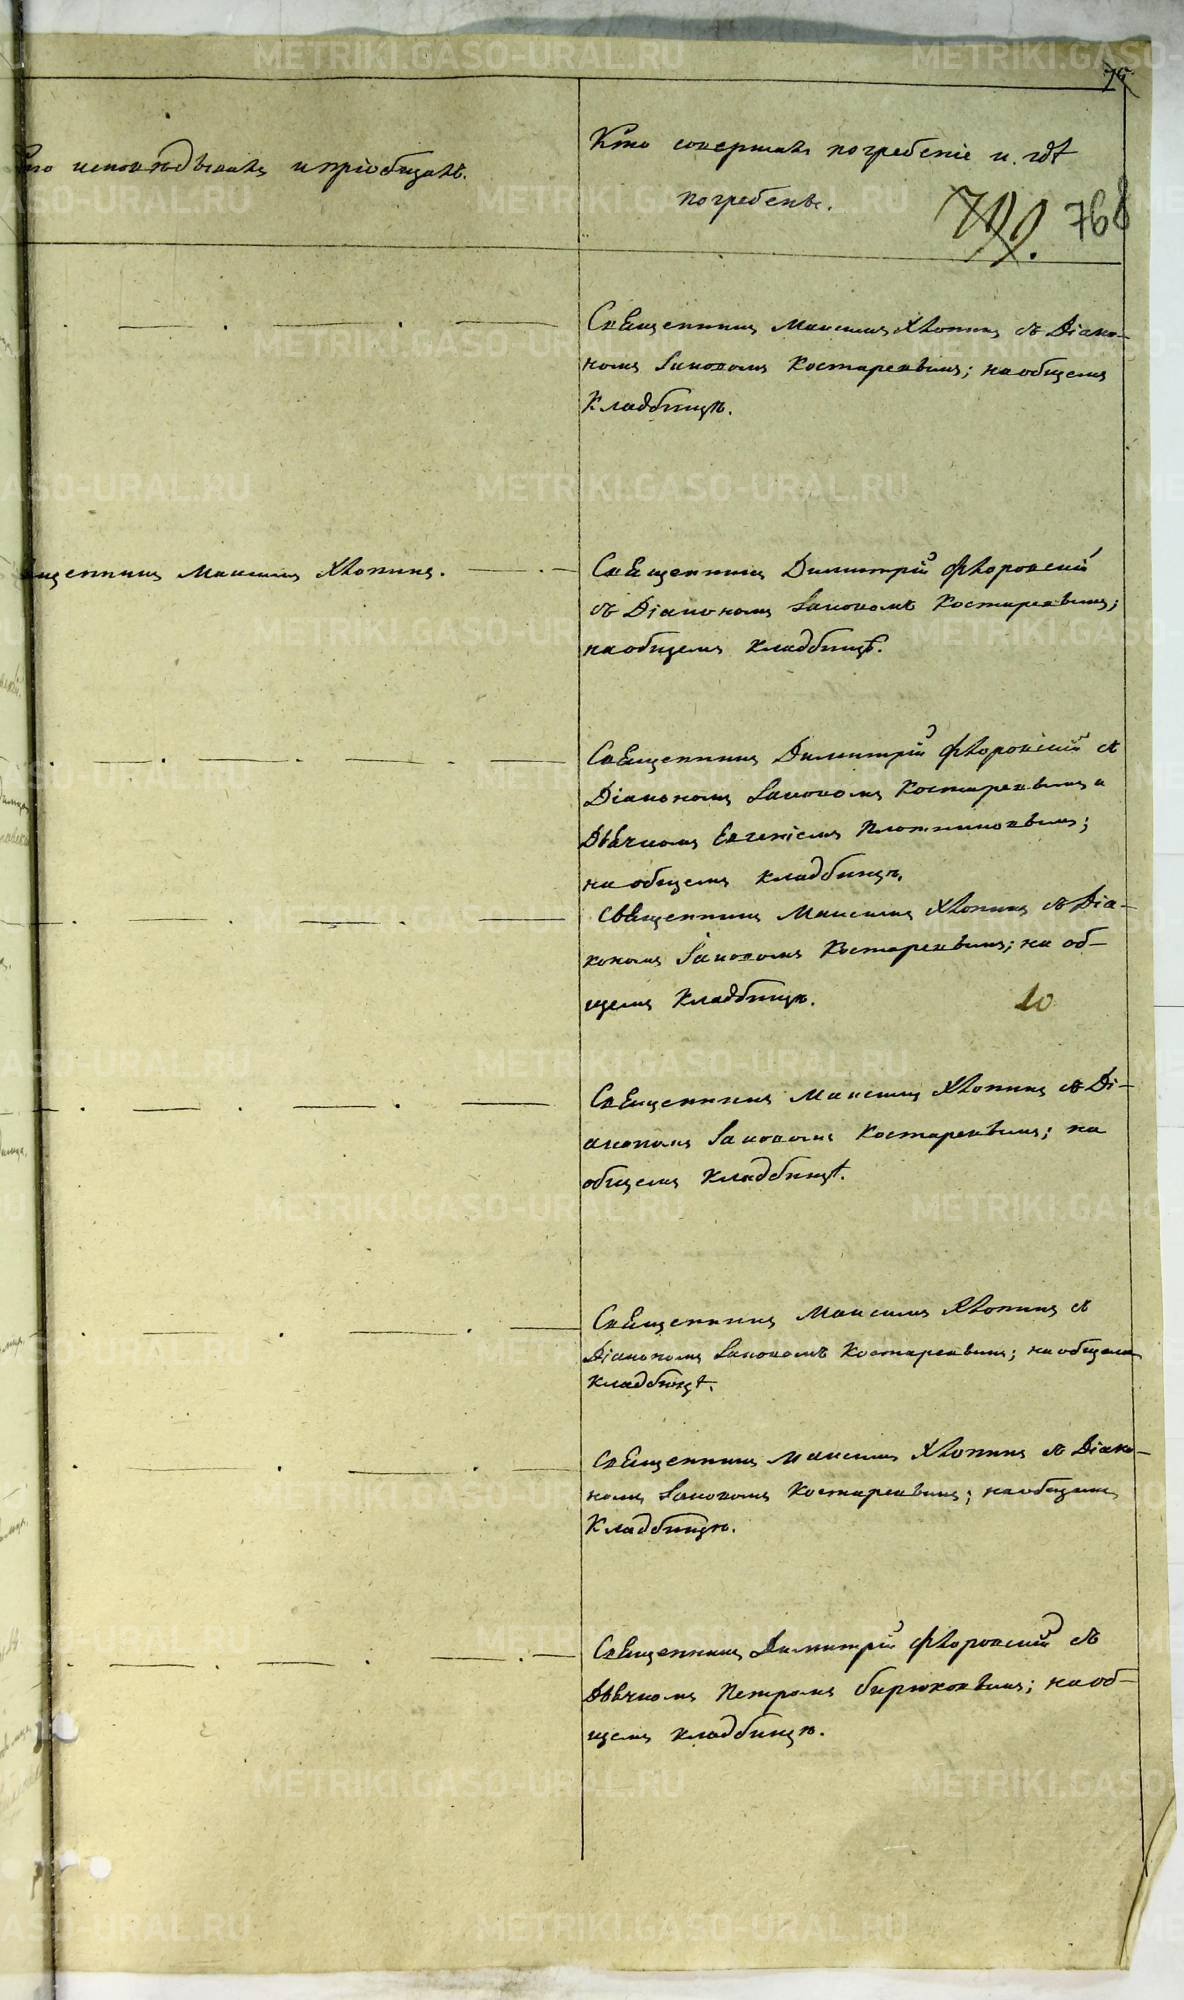 75
Кто исповѣдывалъ и пріобщалъ.
Кто совершалъ погребеніе и гдѣ
погребенъ.
799. 768
Священникъ Максимъ Хлопинъ съ Діако-
номъ Іаковомъ Костаревымъ; на общемъ
Кладбищѣ.
Священникъ Максимъ Хлопинъ.
Священникъ Димитрій Флоровскій
съ Діакономъ Іаковомъ Костаревымъ;
на общемъ кладбищѣ.
Священникъ Димитрій Флоровскій съ
Діакономъ Іаковомъ Костаревымъ и
Дьячкомъ Евгеніемъ Плотниковымъ;
на общемъ кладбищѣ.
Священникъ Максимъ Хлопинъ съ Діа-
кономъ Іаковомъ Костаревымъ; на об-
щемъ Кладбищѣ.
10
Священникъ Максимъ Хлопинъ съ Ді-
акономъ Іаковомъ Костаревымъ; на
общемъ Кладбищѣ.
Священникъ Максимъ Хлопинъ съ
Діакономъ Іаковомъ Костаревымъ; на общемъ
Кладбищѣ.
Священникъ Максимъ Хлопинъ съ Діако-
номъ Іаковомъ Костаревымъ; на общемъ
Кладбищѣ.
Священникъ Димитрій Флоровскій съ
Дьячкомъ Петромъ Бирюковымъ; на об-
щемъ кладбищѣ.
METRIKI.GASO-URAL.RU